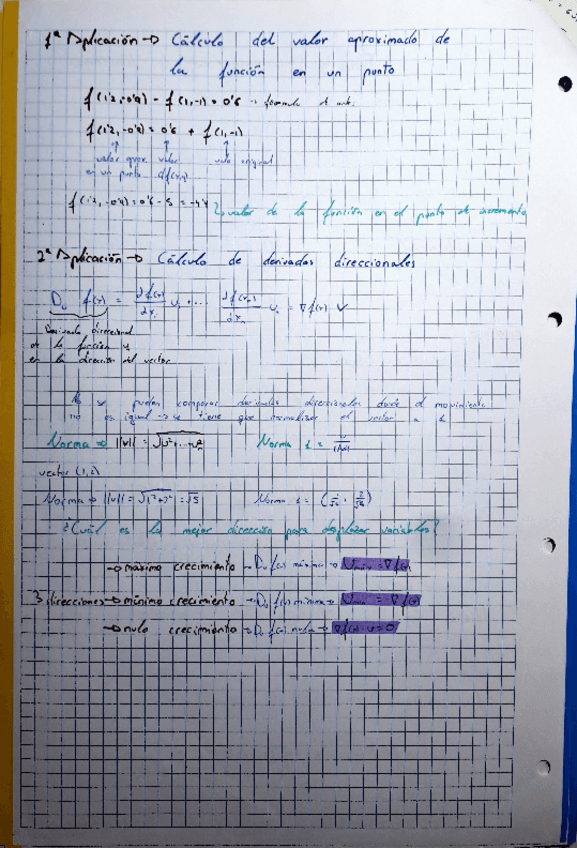 1ª Aplicación → Cálculo del valor aproximado de
la función en un punto
f(1'2,-0'9) - f(1,-1) = 0'6 → formula de
f(1'2,-0'9) = 0'6 + f(1,-1)
valor aprox. valor valor original
en un punto df(x,y)
f(1'2,-0'9) = 0'6 - 5 = -4'4 → valor de la función en el punto de incremento
2ª Aplicación → Cálculo de derivadas direccionales
Dᵤ f(x) = ∂f(x)/∂x₁ u₁ ... ∂f(x)/∂xₙ uₙ = ∇f(x) · V
Derivada direccional
de la función
en la dirección del vector
No se pueden comparar derivadas direccionales donde el movimiento
no es igual → se tiene que normalizar el vector a 1
Norma → ||v|| = √u²+...+u²ₙ Norma 1 = v/||v||
vector (1,2)
Norma → ||v|| = √1²+2² = √5 Norma 1 = (1/√5, 2/√5)
¿Cuál es la mejor dirección para desplazar variables?
→ máximo crecimiento → Dᵤf(x) máxima → Vmáx = ∇f(x)
3 direcciones → mínimo crecimiento → Dᵤf(x) mínima → Vmin = -∇f(x)
→ nulo crecimiento → Dᵤf(x) nula → ∇f(x) · v = 0